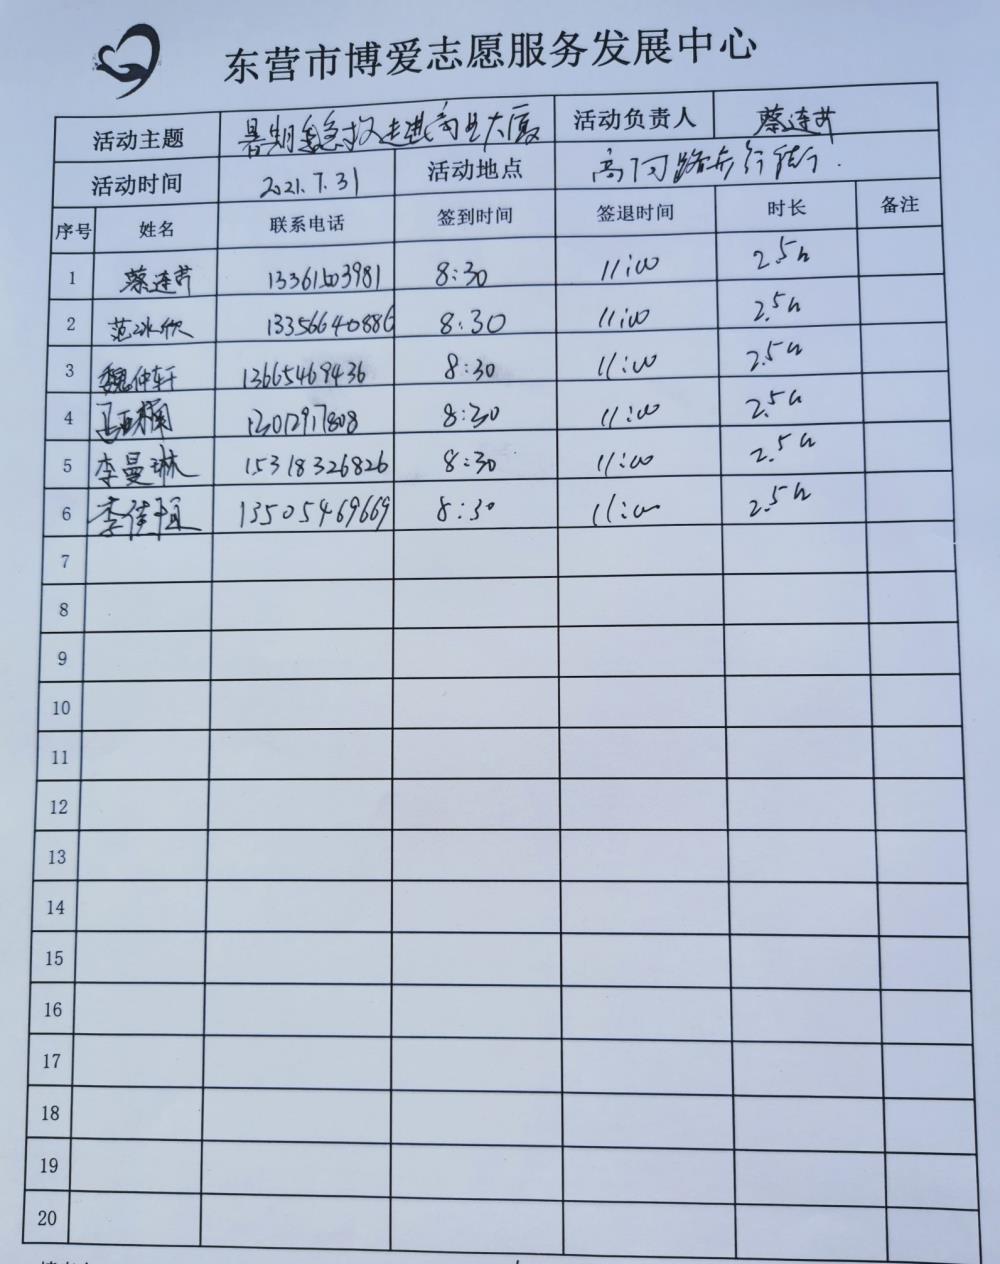 东营市博爱志愿服务发展中心
活动主题 暑期急救走进商业大厦 活动负责人 蔡连芹
活动时间 2021.7.31 活动地点
序号 姓名 联系电话 签到时间 签退时间 时长 备注
1 蔡连芹 8:30 11:00 2.5h
2 范冰欣 13356640886 8:30 11:00 2.5h
3 魏仲轩 13665469436 8:30 11:00 2.5h
4 8:30 11:00 2.5h
5 李曼琳 15318326826 8:30 11:00 2.5h
6 13505469669 8:30 11:00 2.5h
7
8
9
10
11
12
13
14
15
16
17
18
19
20